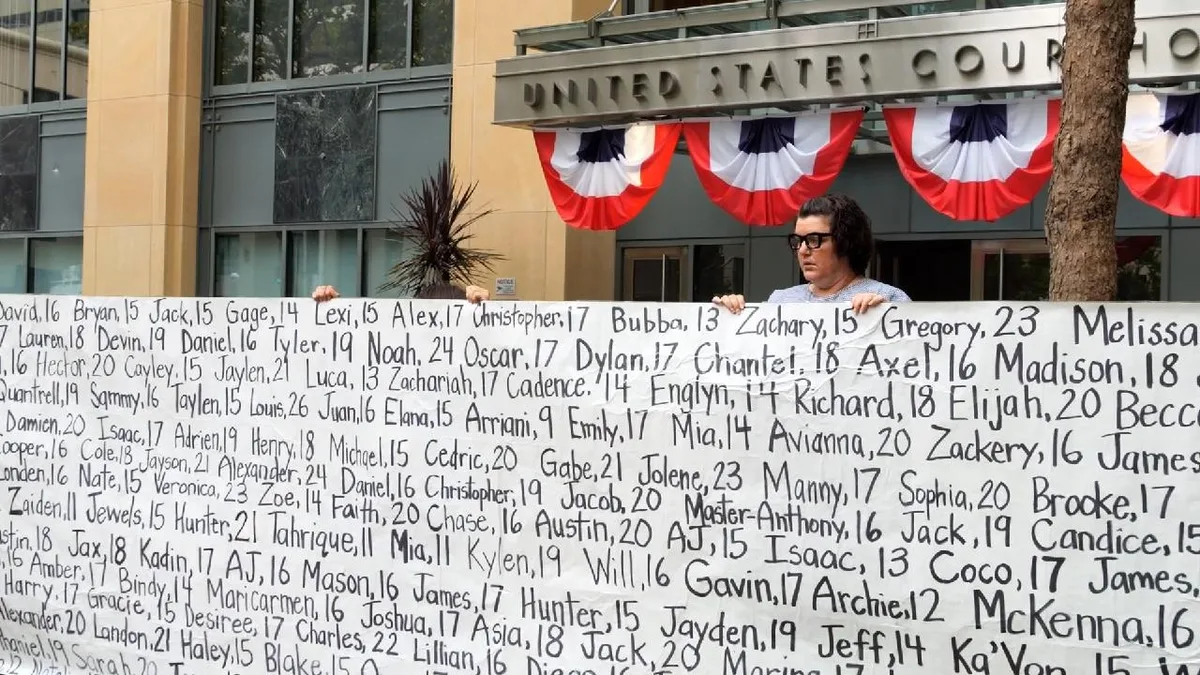 UNITED STATES COURTHO
David, 16 Bryan, 15 Jack, 15 Gage, 14 Lexi, 15 Alex, 17 Christopher, 17 Bubba, 13 Zachary, 15 Gregory, 23 Melissa
Lauren, 18 Devin, 19 Daniel, 16 Tyler, 19 Noah, 24 Oscar, 17 Dylan, 17 Chantel, 18 Axel, 16 Madison, 18
16 Hector, 20 Cayley, 15 Jaylen, 21 Luca, 13 Zachariah, 17 Cadence, 14 Englyn, 14 Richard, 18 Elijah, 20 Becc
Quantrell, 19 Sammy, 16 Taylen, 15 Louis, 26 Juan, 16 Elana, 15 Arriani, 9 Emily, 17 Mia, 14 Avianna, 20 Zackery, 16 James
Damien, 20 Isaac, 17 Adrien, 19 Henry, 18 Michael, 15 Cedric, 20 Gabe, 21 Jolene, 23 Manny, 17 Sophia, 20 Brooke, 17
Cooper, 16 Cole, 13 Jayson, 21 Alexander, 24 Daniel, 16 Christopher, 19 Jacob, 20 Master-Anthony, 16 Jack, 19 Candice, 15
Londen, 16 Nate, 15 Veronica, 23 Zoe, 14 Faith, 20 Chase, 16 Austin, 20 AJ, 15 Isaac, 13 Coco, 17 James,
Zaiden, 11 Jewels, 15 Hunter, 21 Tahrique, 11 Mia, 11 Kylen, 19 Will, 16 Gavin, 17 Archie, 12 McKenna, 16
stin, 18 Jax, 18 Kadin, 17 AJ, 16 Mason, 16 James, 17 Hunter, 15 Jayden, 19 Jeff, 14 Ka'Von, 15
16 Amber, 17 Bindy, 14 Maricarmen, 16 Joshua, 17 Asia, 18 Jack, 20
Harry, 17 Gracie, 15 Desiree, 17 Charles, 22 Lillian, 16
Alexander, 20 Landon, 21 Haley, 15 Blake, 15
19 Sarah, 20